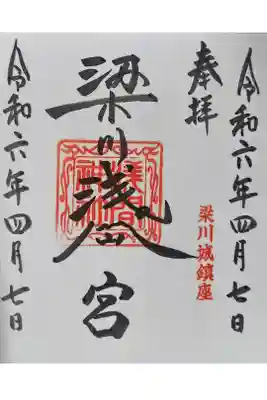 令和六年四月七日
奉拝
梁川城鎮座
梁川浅間宮
令和六年四月七日